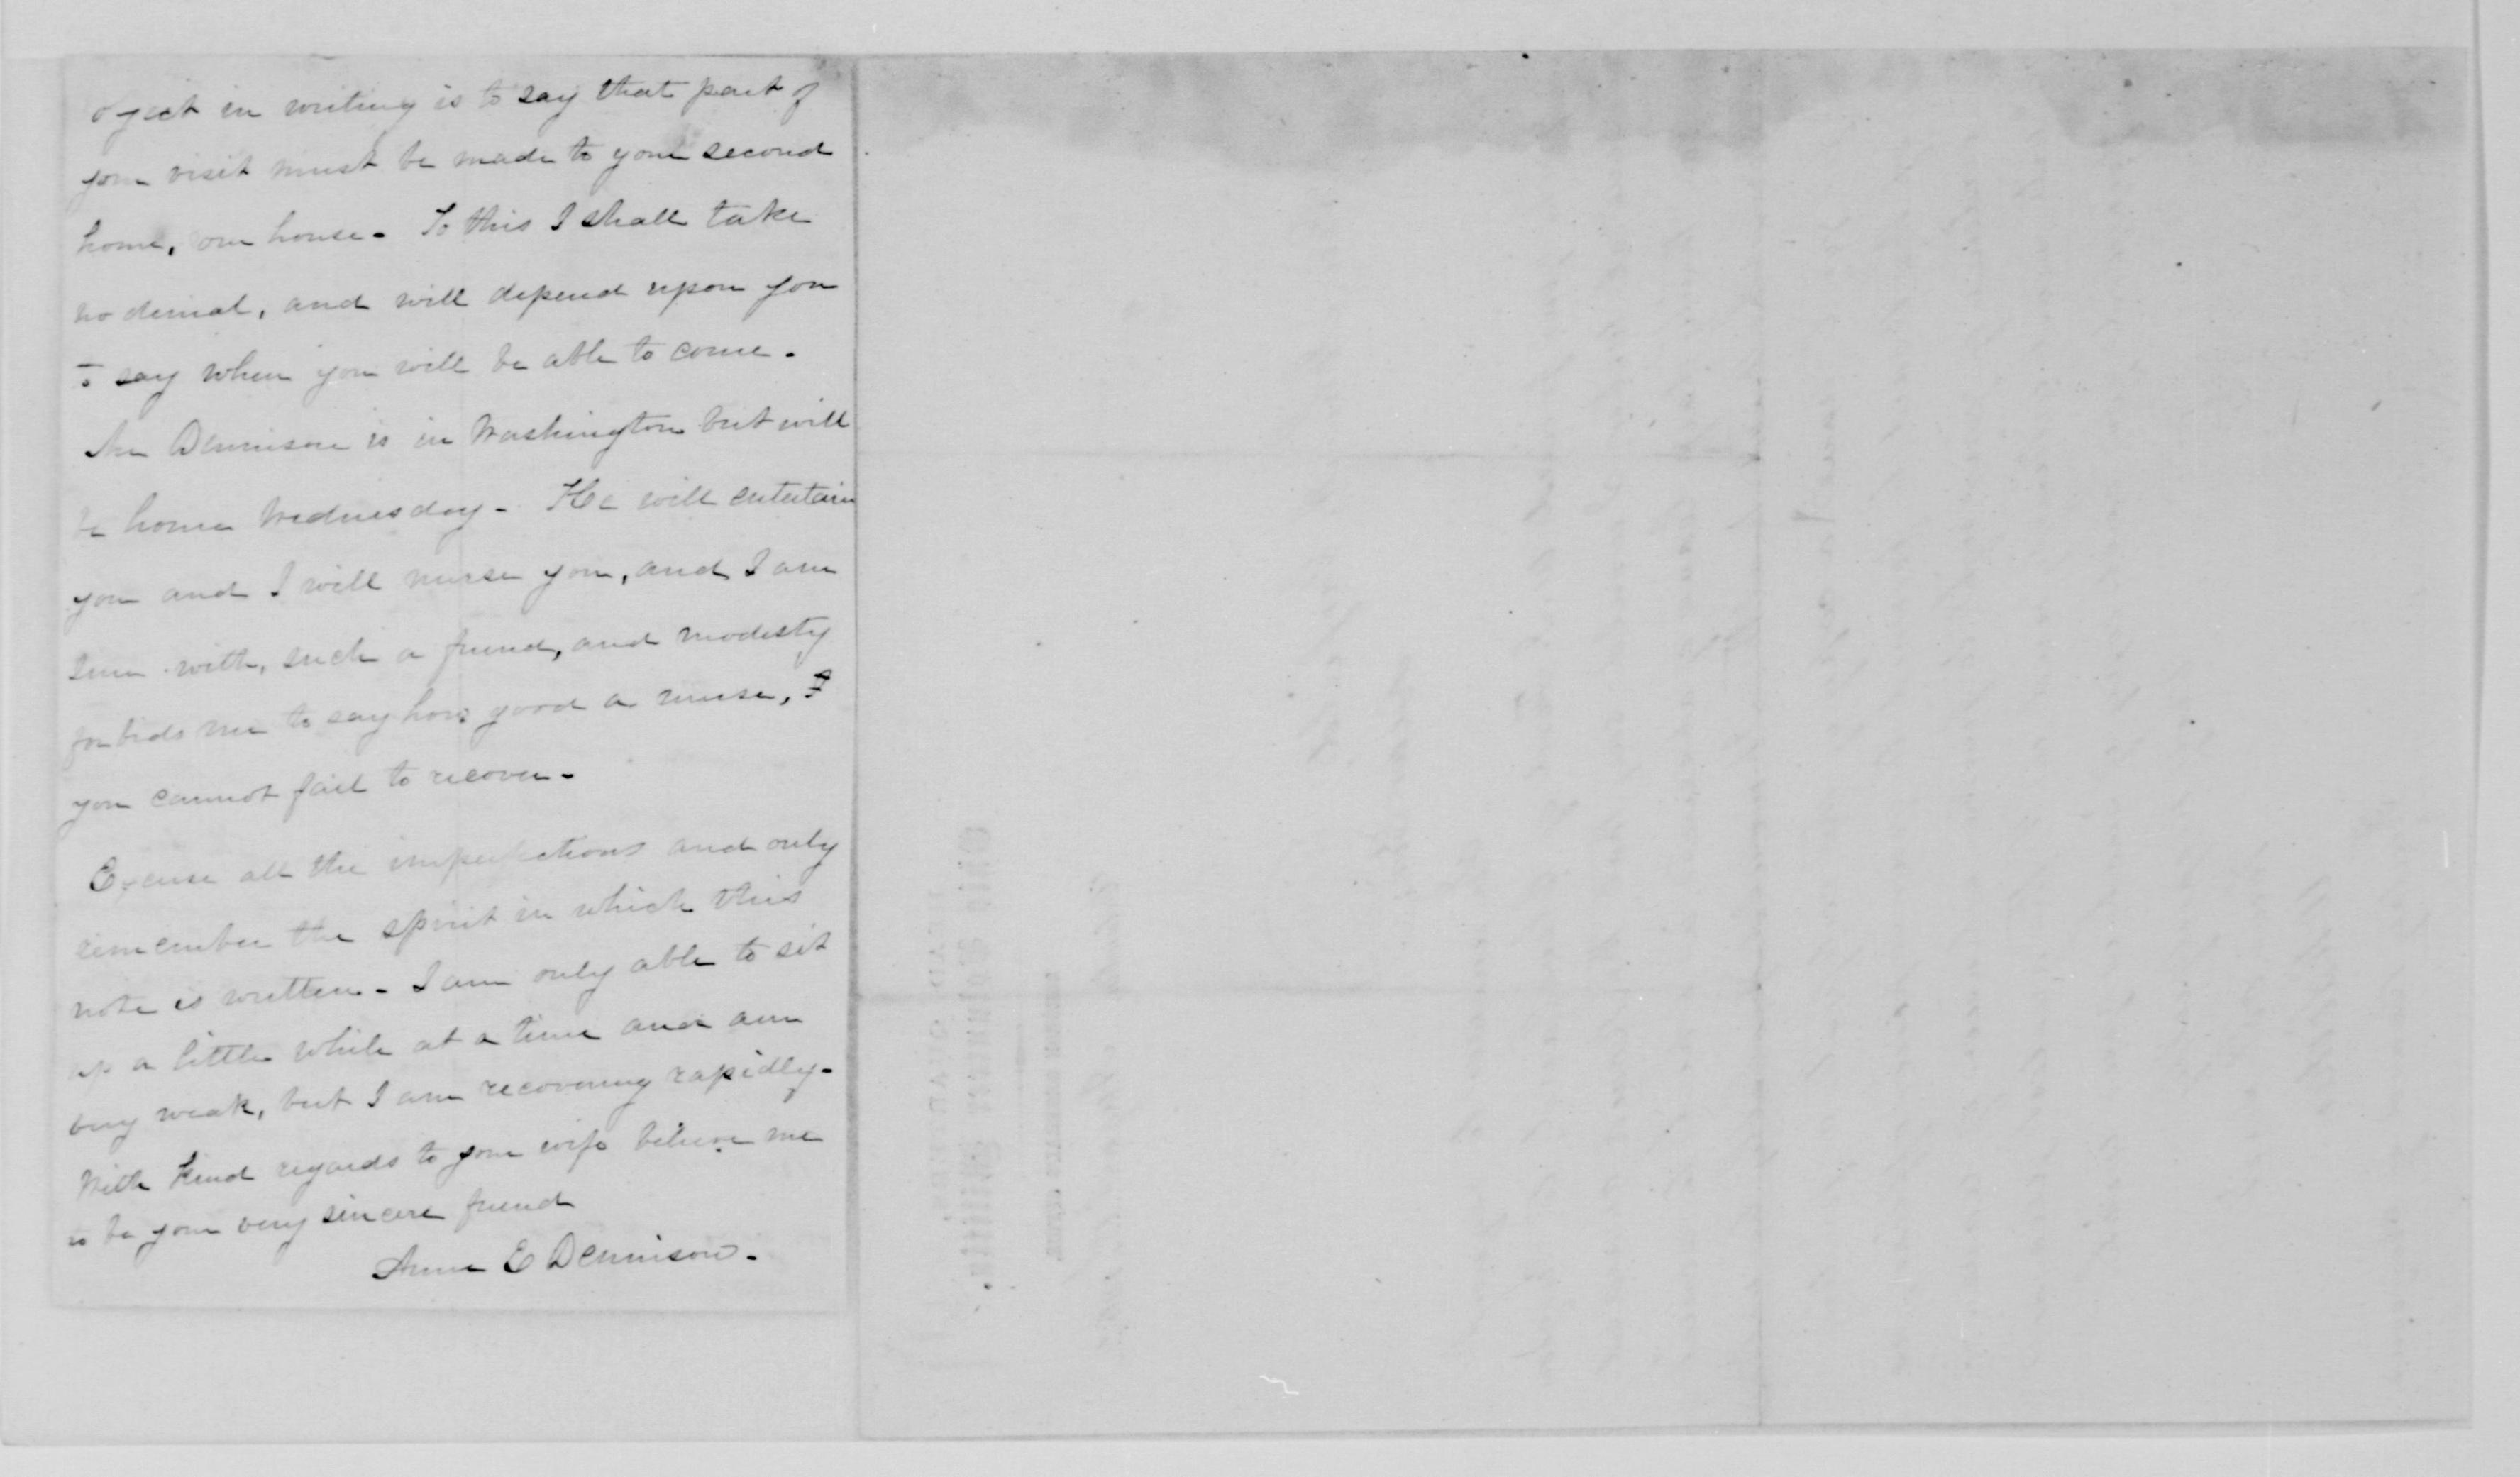 object in writing is to say that part of
your visit must be made to your second
home, our house. To this I shall take
no denial, and will depend upon you
to say when you will be able to come.
Mr Dennison is in Washington but will
be home Wednesday. He will entertain
you and I will nurse you, and I am
sure with, such a friend, and modesty
forbids me to say how good a nurse,
you cannot fail to recover.
Excuse all the imperfections and only
remember the spirit in which this
note is written. I am only able to sit
up a little while at a time and am
very weak, but I am recovering rapidly.
With kind regards to your wife believe me
to be your very sincere friend
Anne E Dennison.